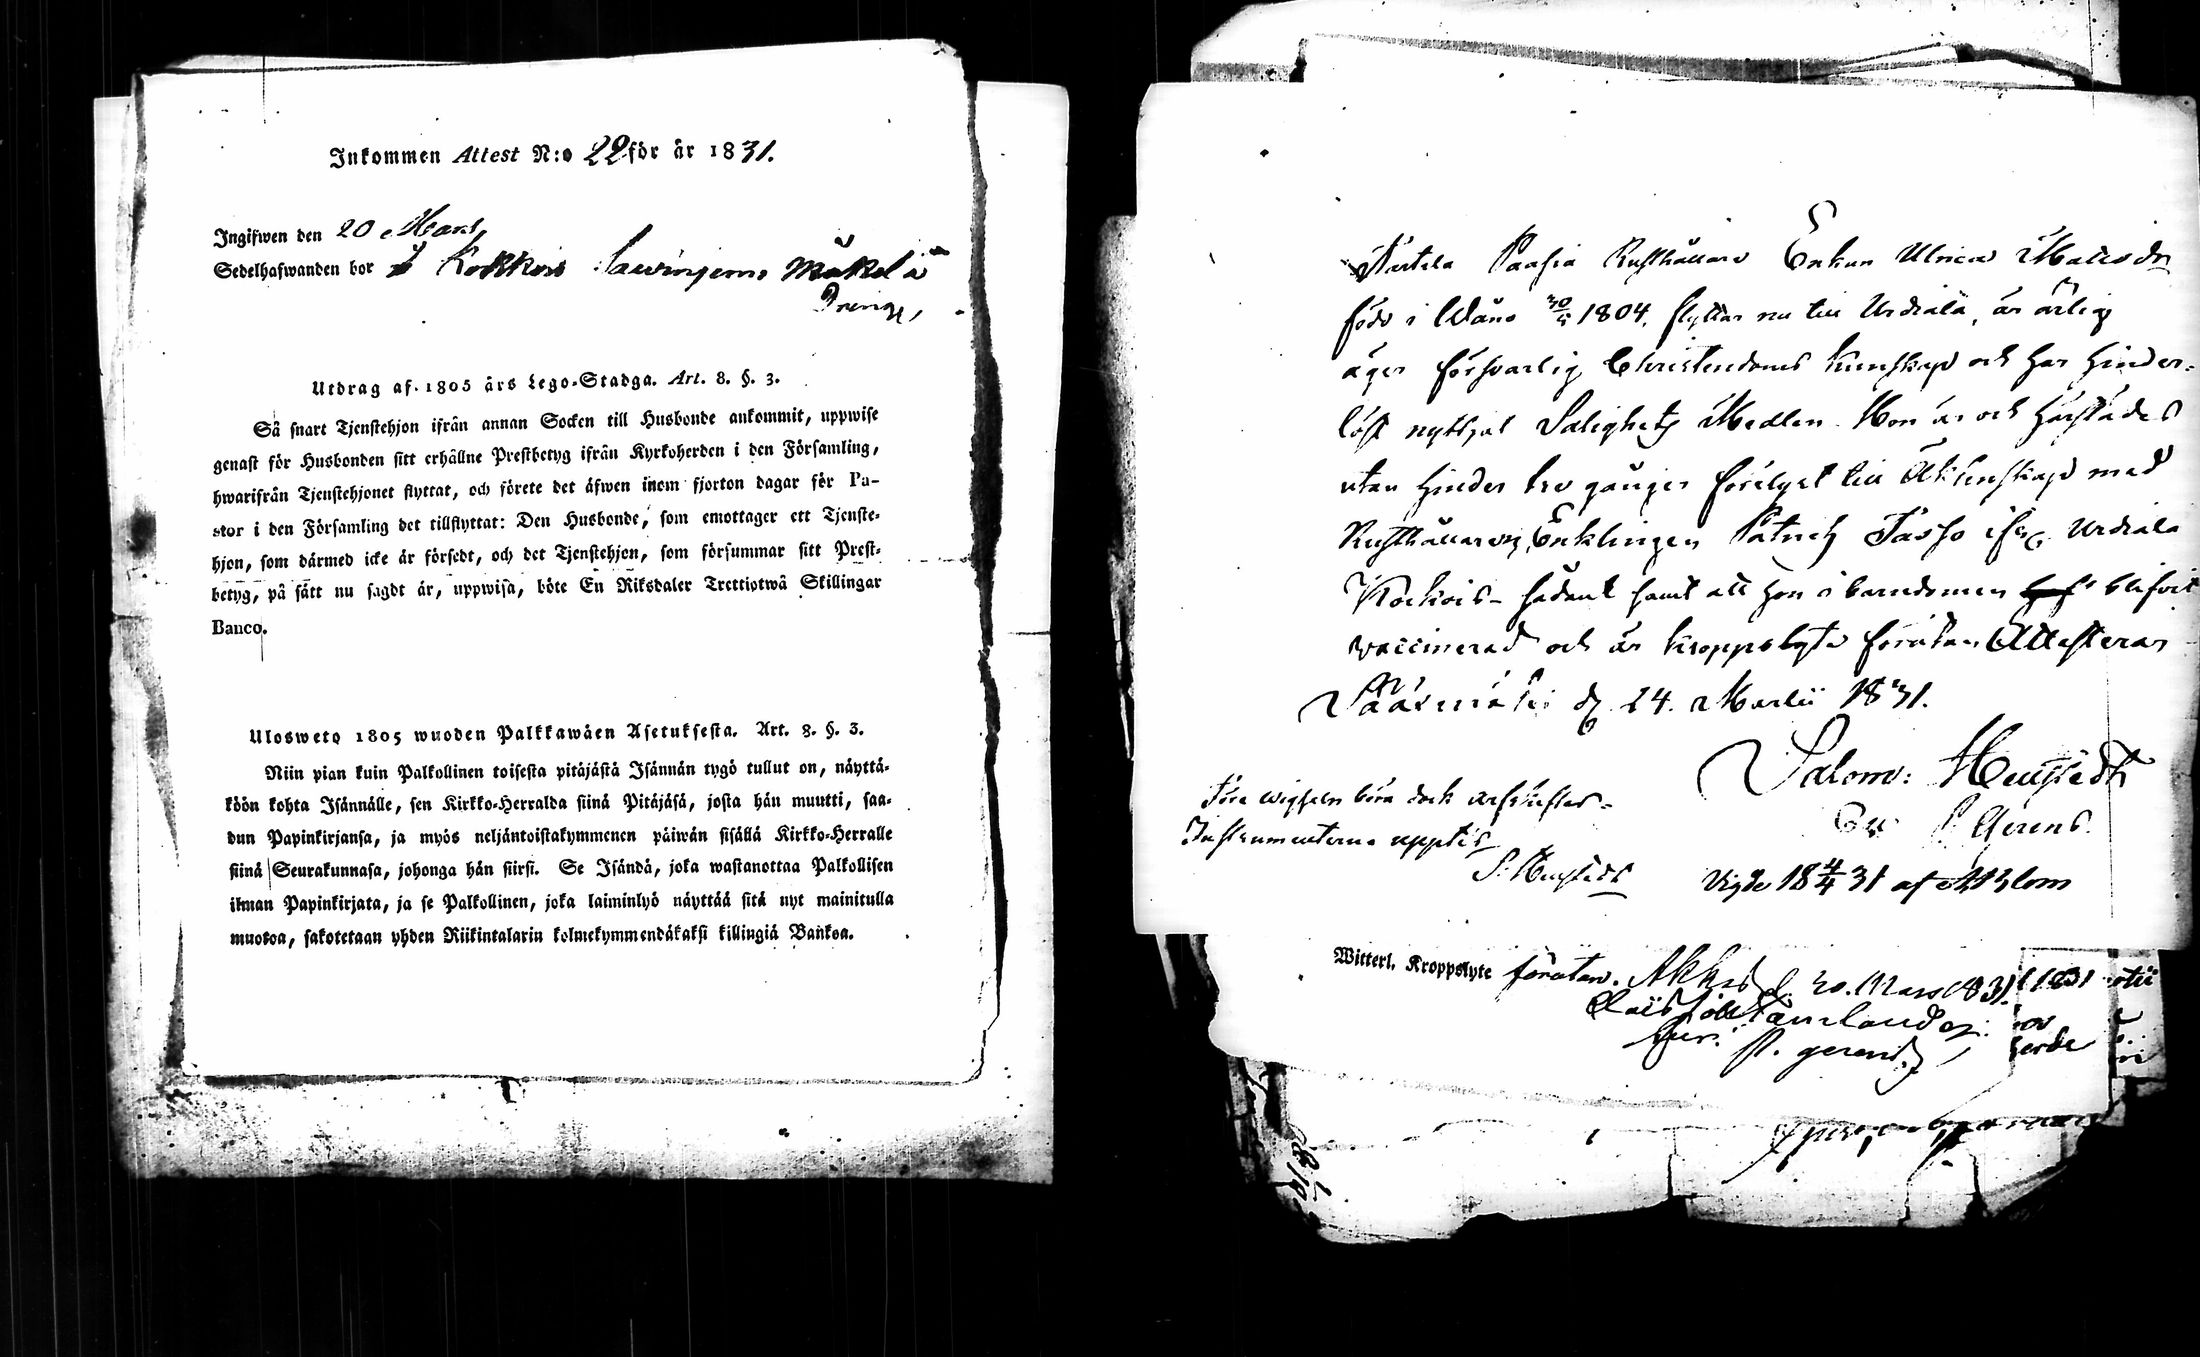 Inkommen Attest N:o 22 för år 1831.
Ingifwen den 20 Mars
Sedelhafwanden bor i Kokkois Sawingem Mäkelä
Dreng,
Utdrag af 1805 års Lego-Stadga. Art. 8. §. 3.
Så snart Tjenstehjon ifrån annan Socken till Husbonde ankommit, uppwise
genast för Husbonden sitt erhållne Prestbetyg ifrån Kyrkoherden i den Församling,
hwarifrån Tjenstehjonet flyttat, och förete det äfwen inom fjorton dagar för Pa-
stor i den Församling det tillflyttat: Den Husbonde, som emottager ett Tjenste-
hjon, som dårmed icke är försedt, och det Tjenstehjon, som försummar sitt Prest-
betyg, på sätt nu sagdt är, uppwisa, böte En Riksdaler Trettiotwå Skillingar
Banco.
Ulosweto 1805 wuoden Palkkawäen Asetuksesta. Art. 8. §. 3.
Niin pian kuin Palkollinen toisesta pitäjästä Isännän tygö tullut on, näyttä-
köön kohta Isännälle, sen Kirkko-Herralda siinä Pitäjäsä, josta hän muutti, saa-
dun Papinkirjansa, ja myös neljäntoistakymmenen päiwän sisällä Kirkko-Herralle
siinä Seurakunnasa, johonga hän siirsi. Se Isändä, joka wastanottaa Palkollisen
ilman Papinkirjata, ja se Palkollinen, joka laiminlyö näyttää sitä nyt mainitulla
muotoa, sakotetaan yhden Riikintalarin kolmekymmendäkaksi killingiä Bankoa.
Rusthållare Enkan Ulrica Matsdr
född i Wåno 30/4 1804, flyttar nu till Urdiala, är ärlig
äger försvarlig Christendoms kunskap och har hinder-
löst nyttjat Salighets Medlen. Hon är och härstädes
utan hinder tre gånger förelyst till Äktenskap med
Rusthållaren, Enklingen Patrich Tasso ifrån Urdiala
Kockois - sådant samt att hon i barndomen blifvit
vaccinerad och är kroppslyte förutan Attesteras
Sääxmäki d. 24. Martii 1831.
Salom: Heurstedt
S. Gerens.
Före wigseln böra dock arfskiftes-
Instrumenterna uppte's
S. Heurstedt
Vigde 18 4/4 31 af Ahlbom
Witterl. Kroppslyte förutan. Akkas d. 20. Mars 1831.
p. gerens.